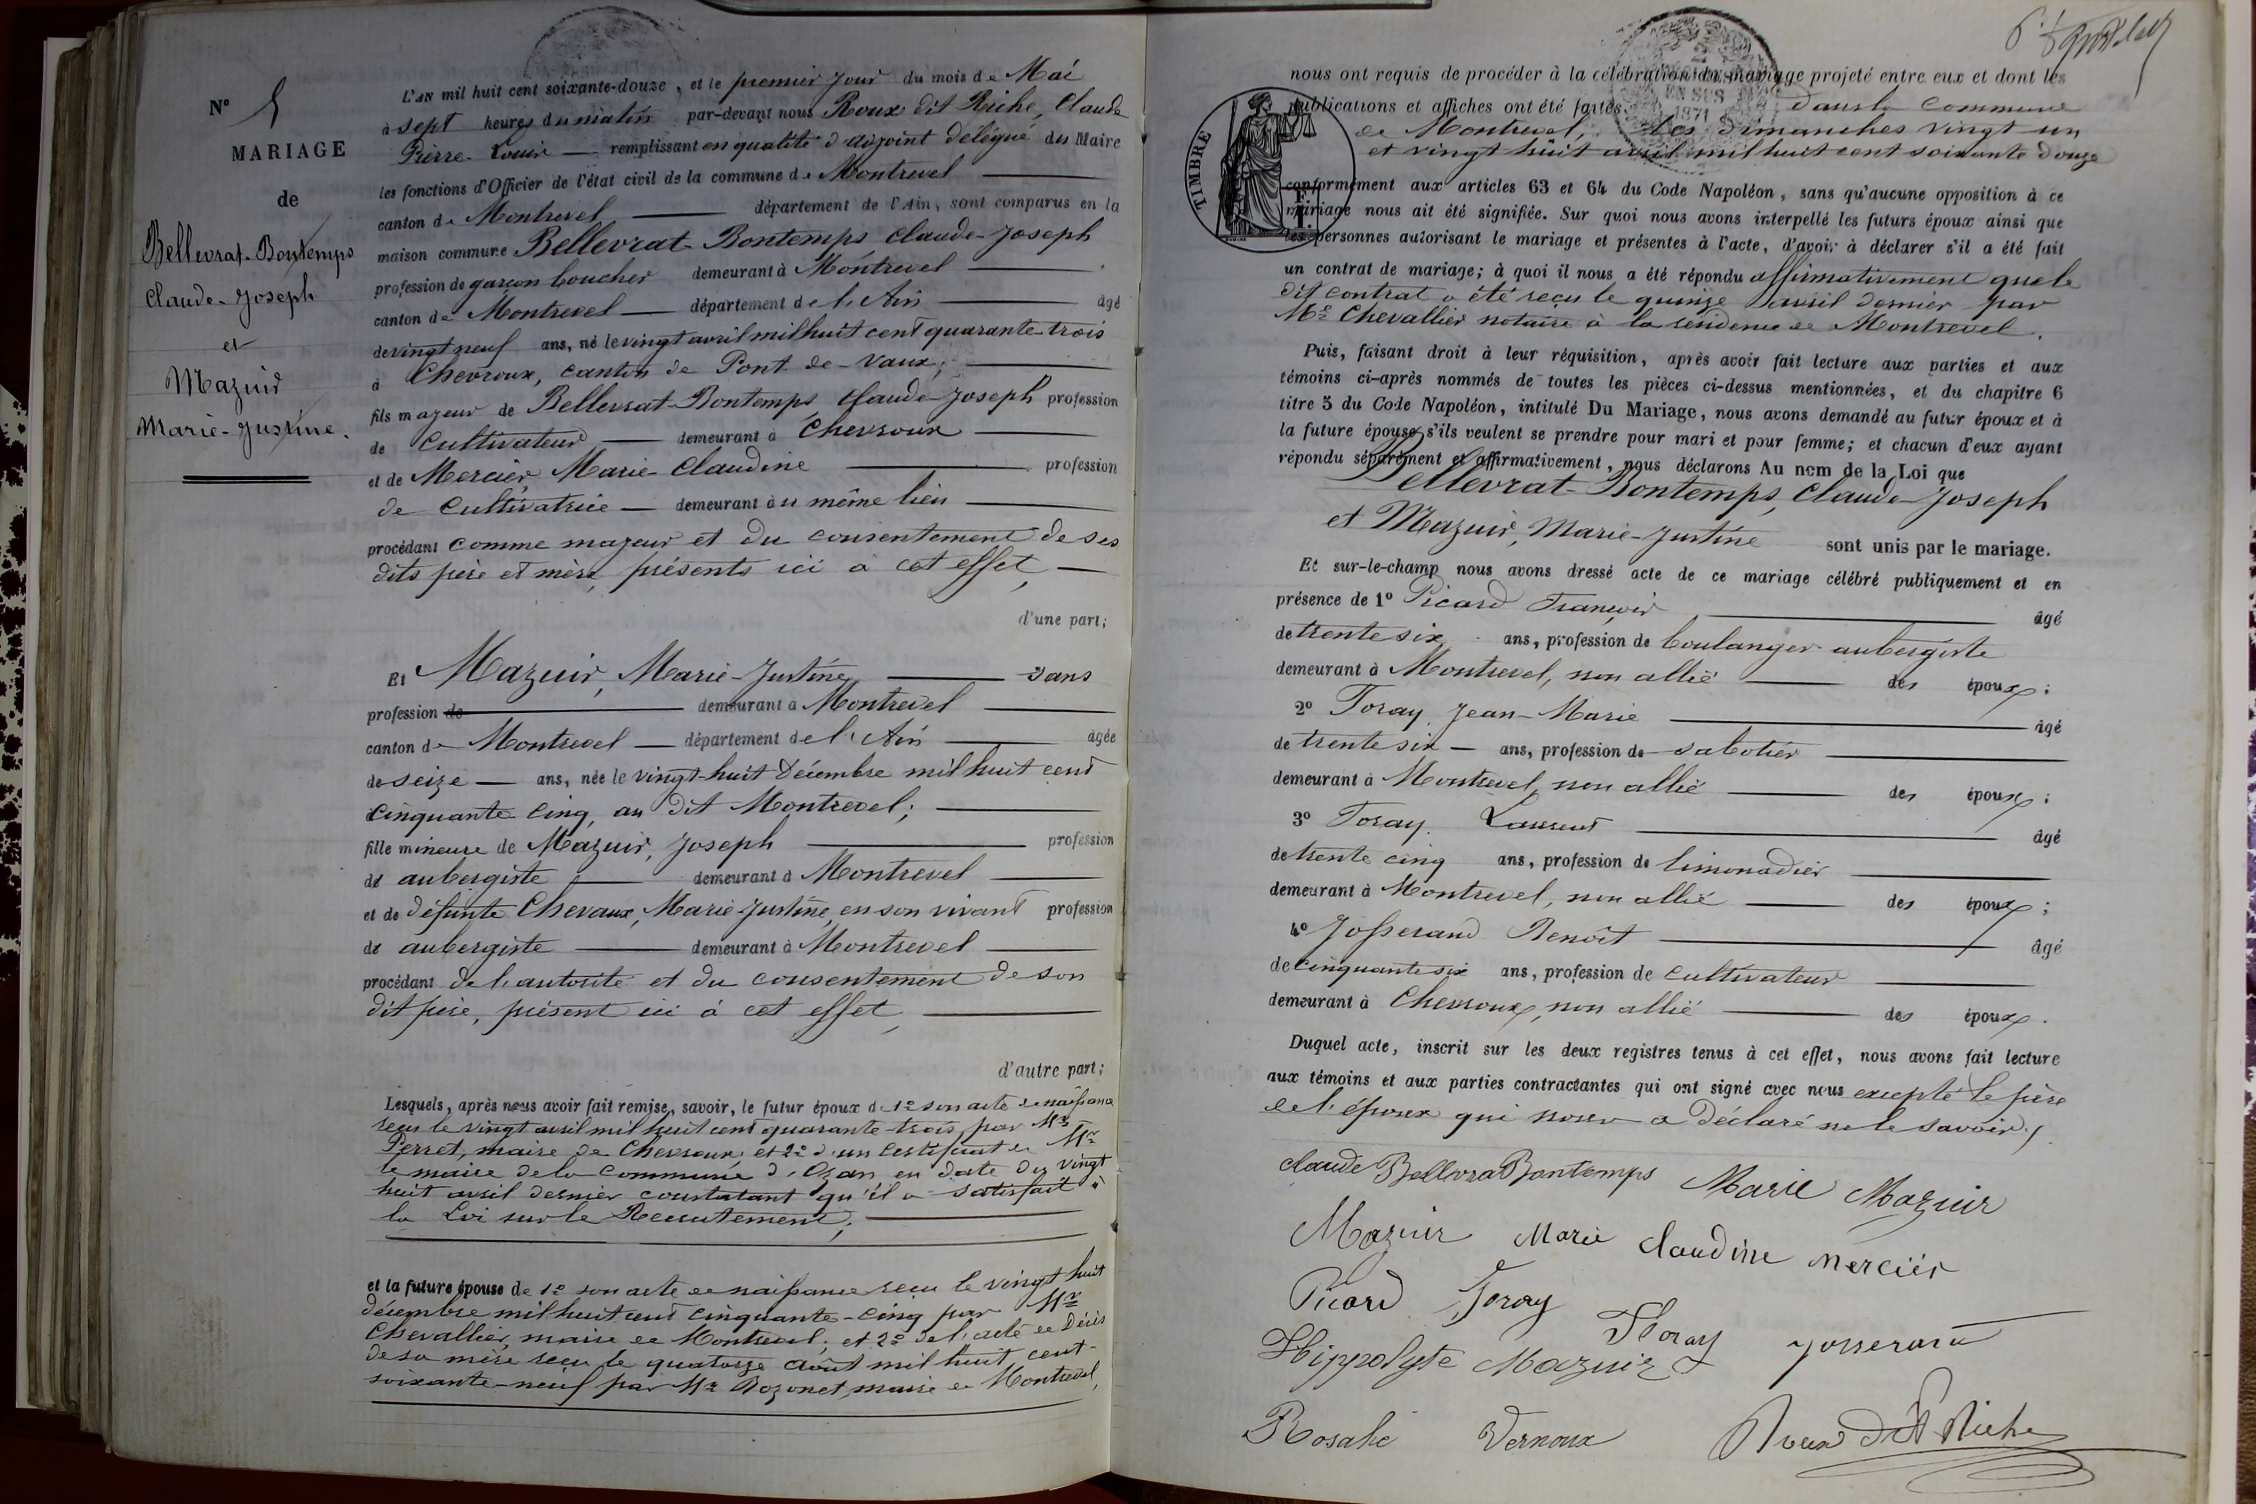 N° 5
MARIAGE
de
Bellevrat-Bontemps
Claude-Joseph
et
Mazuir
Marie-Justine.
L'AN mil huit cent soixante-douze, et le premier jour du mois de Mai
à sept heures du matin par-devant nous Roux dit Riche, Claude
Pierre-Louis remplissant en qualité d'adjoint délégué du Maire
les fonctions d'Officier de l'état civil de la commune de Montrevel
canton de Montrevel département de l'Ain, sont comparus en la
maison commune Bellevrat-Bontemps Claude-Joseph
profession de garçon boucher demeurant à Montrevel
canton de Montrevel département de l'Ain âgé
de vingt neuf ans, né le vingt avril mil huit cent quarante trois
à Chevroux, canton de Pont-de-Vaux;
fils majeur de Bellevrat-Bontemps Claude-Joseph profession
de Cultivateur demeurant à Chevroux
et de Mercier, Marie-Claudine profession
de Cultivatrice demeurant au même lieu
procédant comme majeur et du consentement de ses
dits père et mère, présents ici à cet effet,
d'une part;
Et Mazuir, Marie-Justine sans
profession de demeurant à Montrevel
canton de Montrevel département de l'Ain âgée
de seize ans, née le vingt-huit Décembre mil huit cent
cinquante cinq, au dit Montrevel;
fille mineure de Mazuir, Joseph profession
de aubergiste demeurant à Montrevel
et de défunte Chevaux, Marie-Justine, en son vivant profession
de aubergiste demeurant à Montrevel
procédant de l'autorité et du consentement de son
dit père, présent ici à cet effet,
d'autre part;
Lesquels, après nous avoir fait remise, savoir, le futur époux de 1° son acte de naissance
reçu le vingt avril mil huit cent quarante-trois par Mr
Perret, maire de Chevroux et 2° d'un certificat de Mr
le maire de la Commune d'Ozan en date du vingt
huit avril dernier constatant qu'il a satisfait à
la Loi sur le Recrutement;
et la future épouse de 1° son acte de naissance reçu le vingt huit
décembre mil huit cent cinquante-cinq par Mr
Chevallier, maire de Montrevel; et 2° de l'acte de Décès
de sa mère reçu le quatorze août mil huit cent-
soixante-neuf par Mr Bozonet, maire de Montrevel,
nous ont requis de procéder à la célébration du mariage projeté entre eux et dont les
publications et affiches ont été faites dans la Commune
de Montrevel, les dimanches vingt-un
et vingt huit avril mil huit cent soixante douze
TIMBRE
1871
conformément aux articles 63 et 64 du Code Napoléon, sans qu'aucune opposition à ce
mariage nous ait été signifiée. Sur quoi nous avons interpellé les futurs époux ainsi que
les personnes autorisant le mariage et présentes à l'acte, d'avoir à déclarer s'il a été fait
un contrat de mariage; à quoi il nous a été répondu affirmativement que le
dit contrat a été reçu le quinze avril dernier par
Me Chevallier notaire à la résidence de Montrevel.
Puis, faisant droit à leur réquisition, après avoir fait lecture aux parties et aux
témoins ci-après nommés de toutes les pièces ci-dessus mentionnées, et du chapitre 6
titre 5 du Code Napoléon, intitulé Du Mariage, nous avons demandé au futur époux et à
la future épouse s'ils veulent se prendre pour mari et pour femme; et chacun d'eux ayant
répondu séparément et affirmativement, nous déclarons Au nom de la Loi que
Bellevrat-Bontemps, Claude-Joseph
et Mazuir, Marie-Justine sont unis par le mariage.
Et sur-le-champ nous avons dressé acte de ce mariage célébré publiquement et en
présence de 1° Picard François âgé
de trente six ans, profession de boulanger aubergiste
demeurant à Montrevel, non allié des époux;
2° Foray, Jean-Marie âgé
de trente six ans, profession de sabotier
demeurant à Montrevel, non allié des époux;
3° Foray, Laurent âgé
de trente cinq ans, profession de limonadier
demeurant à Montrevel, non allié des époux;
4° Josserand Benoît âgé
de cinquante six ans, profession de cultivateur
demeurant à Chevroux, non allié des époux.
Duquel acte, inscrit sur les deux registres tenus à cet effet, nous avons fait lecture
aux témoins et aux parties contractantes qui ont signé avec nous excepté le père
de l'époux qui nous a déclaré ne le savoir.
claude Bellvra Bontemps Marie Mazuir
Mazuir Marie Claudine Mercier
Picard Foray
Foray Josserand
Hippolyte Mazuir
Rosalie Vernoux Roux dit Riche